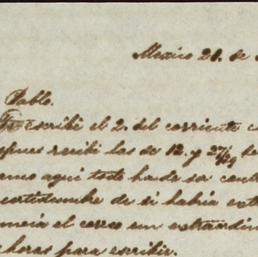 Mexico 28. de
Pablo.
Te escribí el 2. del corriente
recibí las de 12. y 27/29
aquí todo ha de ser
certidumbre de si había
el correo un estraordin
horas para escribir.